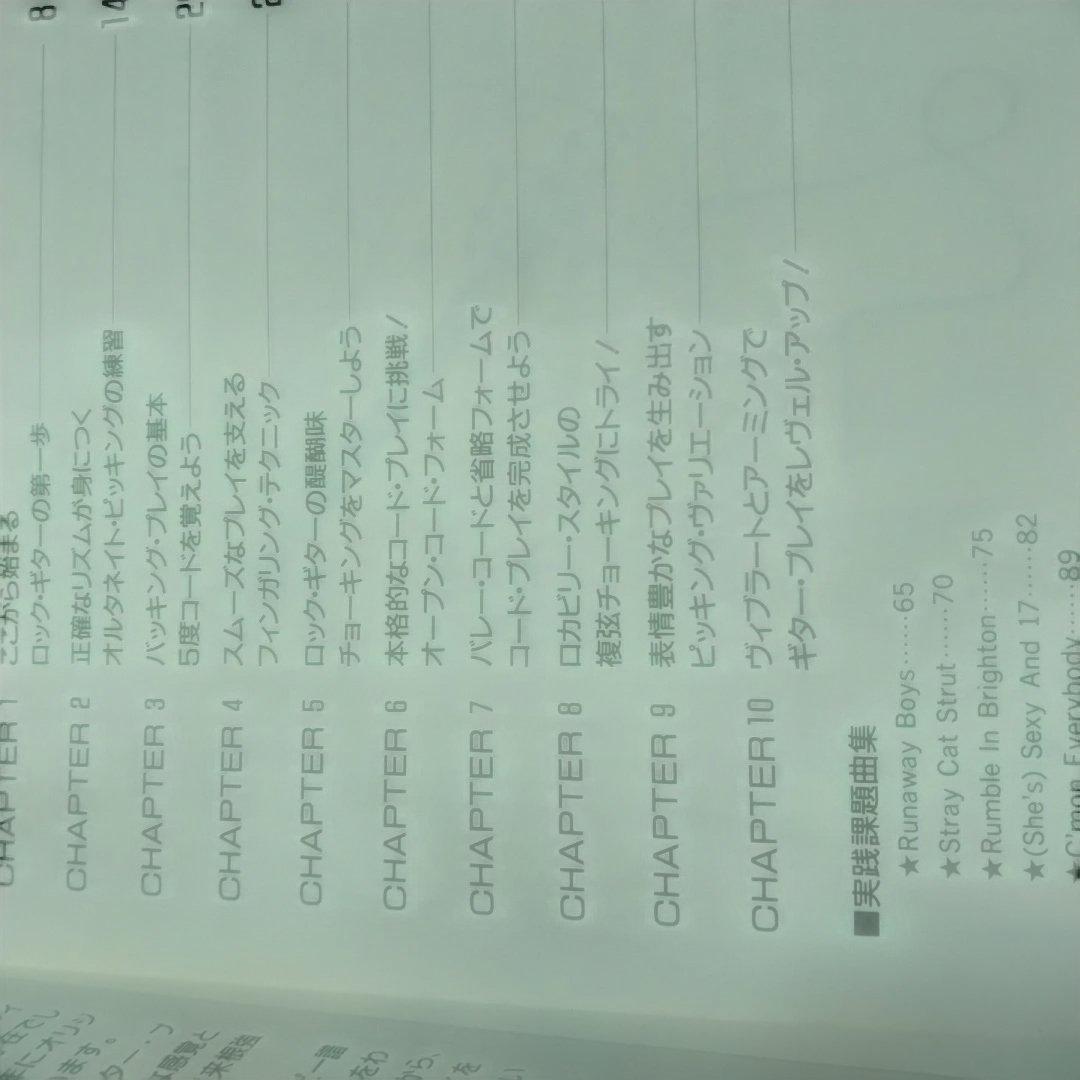 CHAPTER 1 ここから始まる
ロック・ギターの第一歩 8
CHAPTER 2 正確なリズムが身につく
オルタネイト・ピッキングの練習 14
CHAPTER 3 バッキング・プレイの基本
5度コードを覚えよう
CHAPTER 4 スムーズなプレイを支える
フィンガリング・テクニック
CHAPTER 5 ロック・ギターの醍醐味
チョーキングをマスターしよう
CHAPTER 6 本格的なコード・プレイに挑戦!
オープン・コード・フォーム
CHAPTER 7 バレー・コードと省略フォームで
コード・プレイを完成させよう
CHAPTER 8 ロカビリー・スタイルの
複弦チョーキングにトライ!
CHAPTER 9 表情豊かなプレイを生み出す
ピッキング・ヴァリエーション
CHAPTER 10 ヴィブラートとアーミングで
ギター・プレイをレヴェル・アップ!
■実践課題曲集
★Runaway Boys……65
★Stray Cat Strut……70
★Rumble In Brighton……75
★(She's) Sexy And 17……82
★C'mon Everybody……89